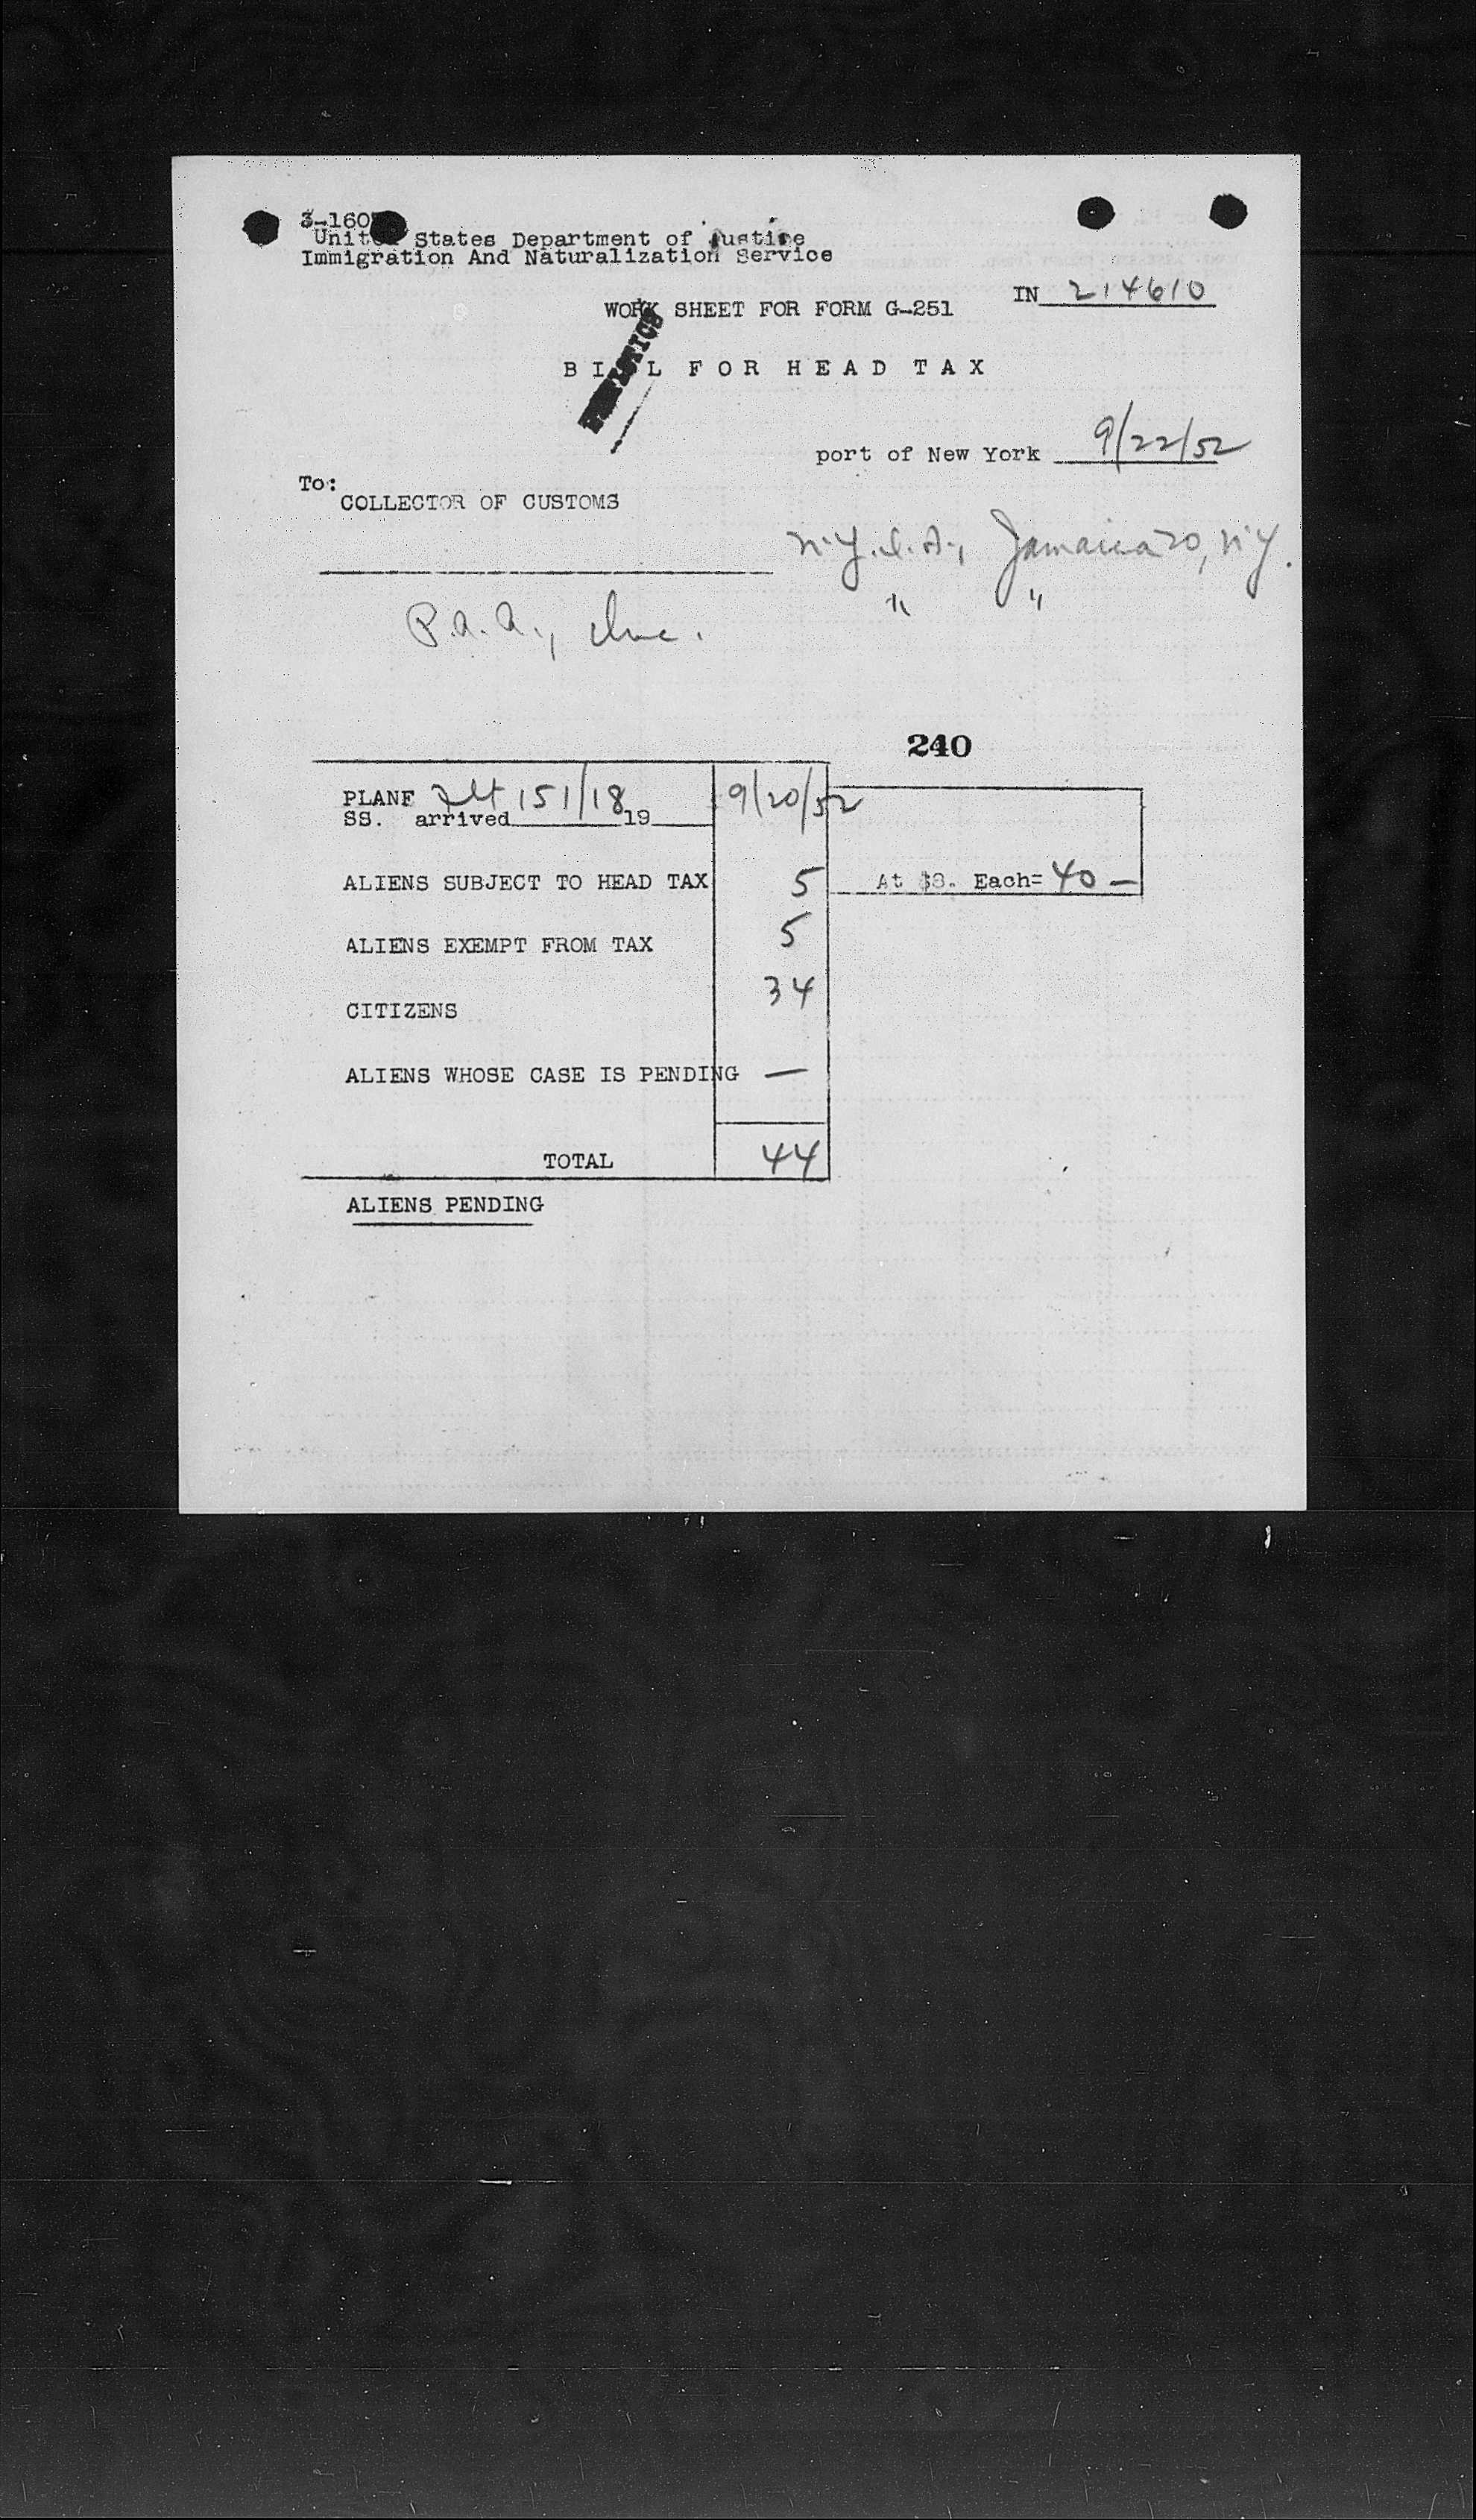 3-160
United States Department of Justice
Immigration And Naturalization Service
IN 214610
WORK SHEET FOR FORM G-251
STATISTICS
BILL FOR HEAD TAX
port of New York 9/22/52
To:
COLLECTOR OF CUSTOMS
N.Y.I.A., Jamaica 20, N.Y.
P.A.A., Inc. " "
240
PLANE Flt 151/18 9/20/52
SS. arrived 19
ALIENS SUBJECT TO HEAD TAX 5 At $8. Each= 40 —
ALIENS EXEMPT FROM TAX 5
CITIZENS 34
ALIENS WHOSE CASE IS PENDING —
TOTAL 44
ALIENS PENDING